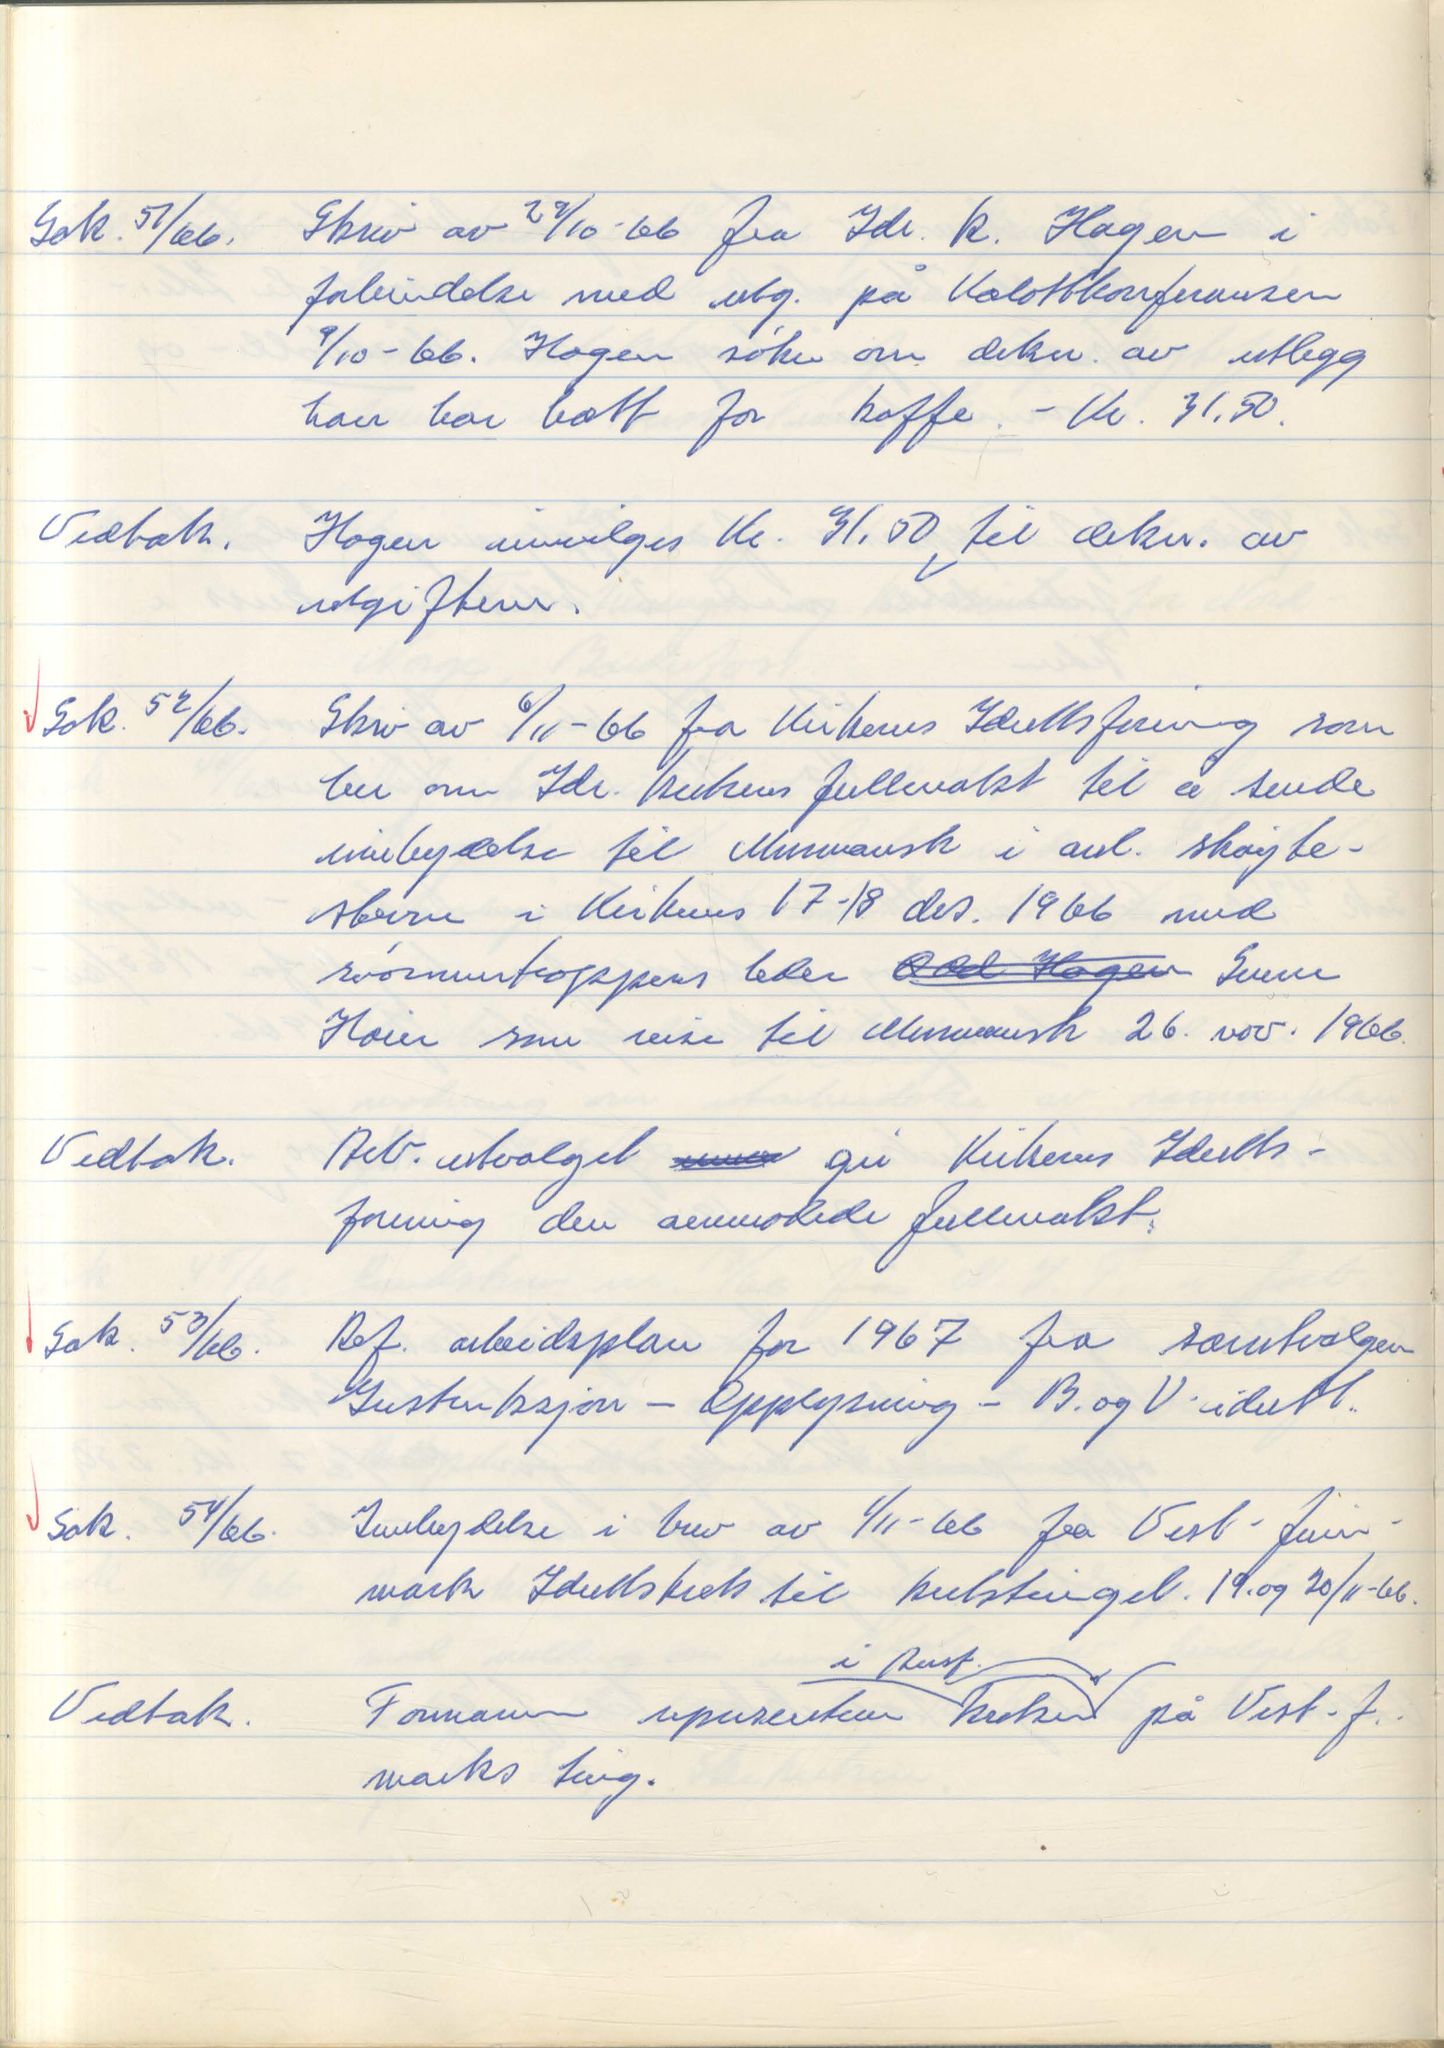 Sak. 51/66. Skriv av 29/10-66 fra Idr. K. Hagen i
forbindelse med utg. på Kalottkonferansen
9/10-66. Hagen søker om dekn. av utlegg
han har hatt for kaffe. - Kr. 31,50.
Vedtak. Hagen innvilges Kr. 31,50 til dekn. av
utgiftene.
Sak. 52/66. Skriv av 6/11-66 fra Kirkenes Idrettsforening som
ber om Idr. kretsens fullmakt til å sende
innbydelse til Murmansk i anl. skøyte-
stevne i Kirkenes 17-18 des. 1966 med
svømmetroppens leder Odd Hagen Sverre
Høier som reise til Murmansk 26. nov. 1966.
Vedtak. Arb. utvalget gir Kirkenes Idretts-
forening den anmodede fullmakt.
Sak. 53/66. Ref. arbeidsplan for 1967 fra særutvalgene
Instruksjon - Opplysning - B. og V. idrett.
Sak. 54/66. Innbydelse i brev av 1/11-66 fra Vest-finn-
mark Idrettskrets til kretstinget. 19. og 20/11-66.
i Rusf.
Vedtak. Formann representerer kretsen på Vest-f.
marks ting.